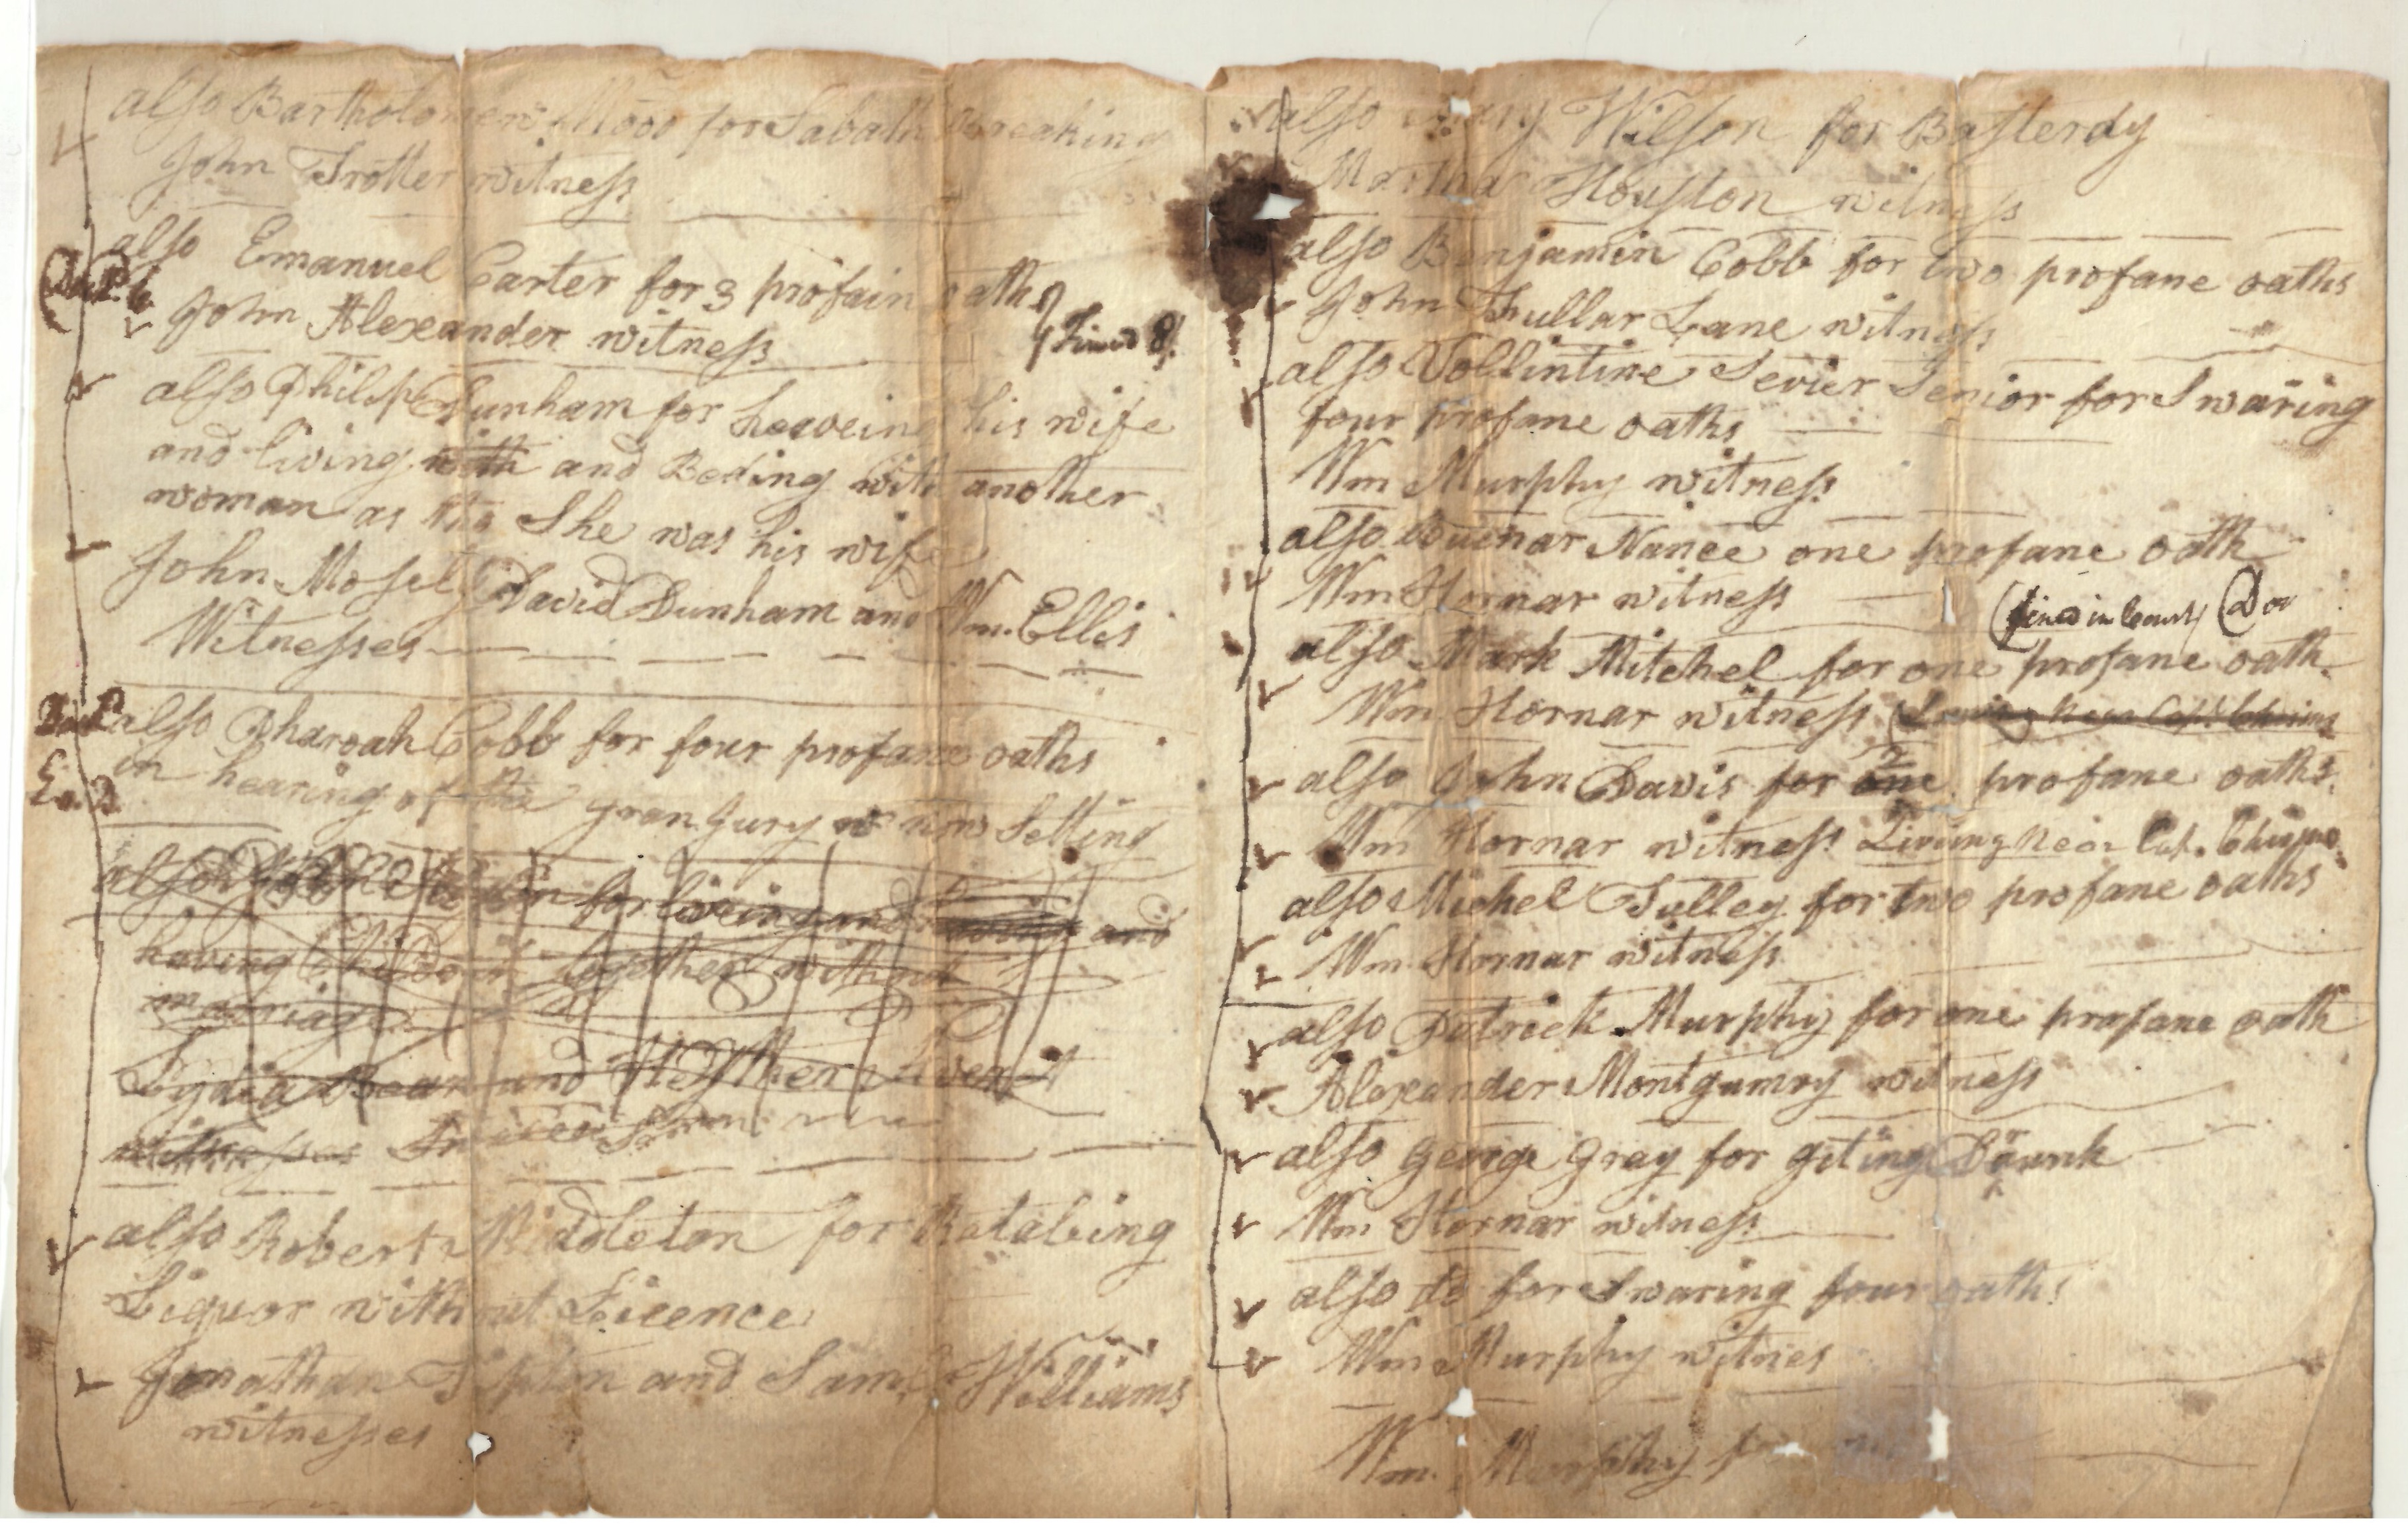 also Bartholomew Moos for Sabath Breaking
John Trotter witness
also Emanuel Carter for 3 profain oaths
fined 8/
John Alexander witness
also Philip Dunham for leaveing his wife
and living with and Beding with another
woman as tho She was his wife
John Mosely David Dunham and Wm. Ellis
Witnesses
also Pharoah Cobb for four profane oaths
in hearing of the gran Jury now Setting
also for liveing and and
having Children together without
marriage
Lydia Bean and Hesther
witnesses
also Robert Middleton for Retaling
Liquor without Licence
Jonathan Tipton and Saml. Williams
witnesses
also Mary Wilson for Basterdy
Martha Houston witness
also Benjamin Cobb for two profane oaths
John Fullar Lane witness
also Vollintine Sevier Senior for Swaring
four profane oaths
Wm Murphy witness
also Nance one profane oath
Wm Hornar witness
(fined in Court)
also Mark Mitchel for one profane oath
Wm Hornar witness
also John Davis for one 2 profane oaths
Wm Hornar witness Living Near Cap.
also Michel Tulley for two profane oaths
Wm. Hornar witness
also Patrick Murphy for one profane oath
Alexander Montgumry witness
also George Gray for giting Drunk
Wm Hornar witness
also do for Swaring four oaths
Wm Murphy witnes
Wm. Murphy